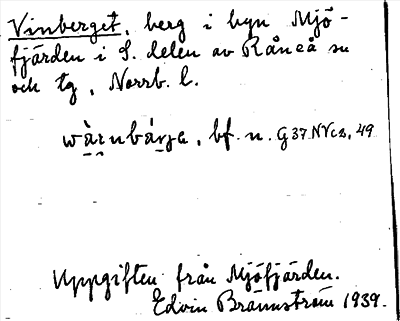 Vinberget, berg i byn Mjö-
fjärden i S. delen av Råneå sn
och tg, Norrb. l.
wàrnbárja, bf. n. G37NVc2,49
Uppgiften från Mjöfjärden.
Edvin Brännström 1939.